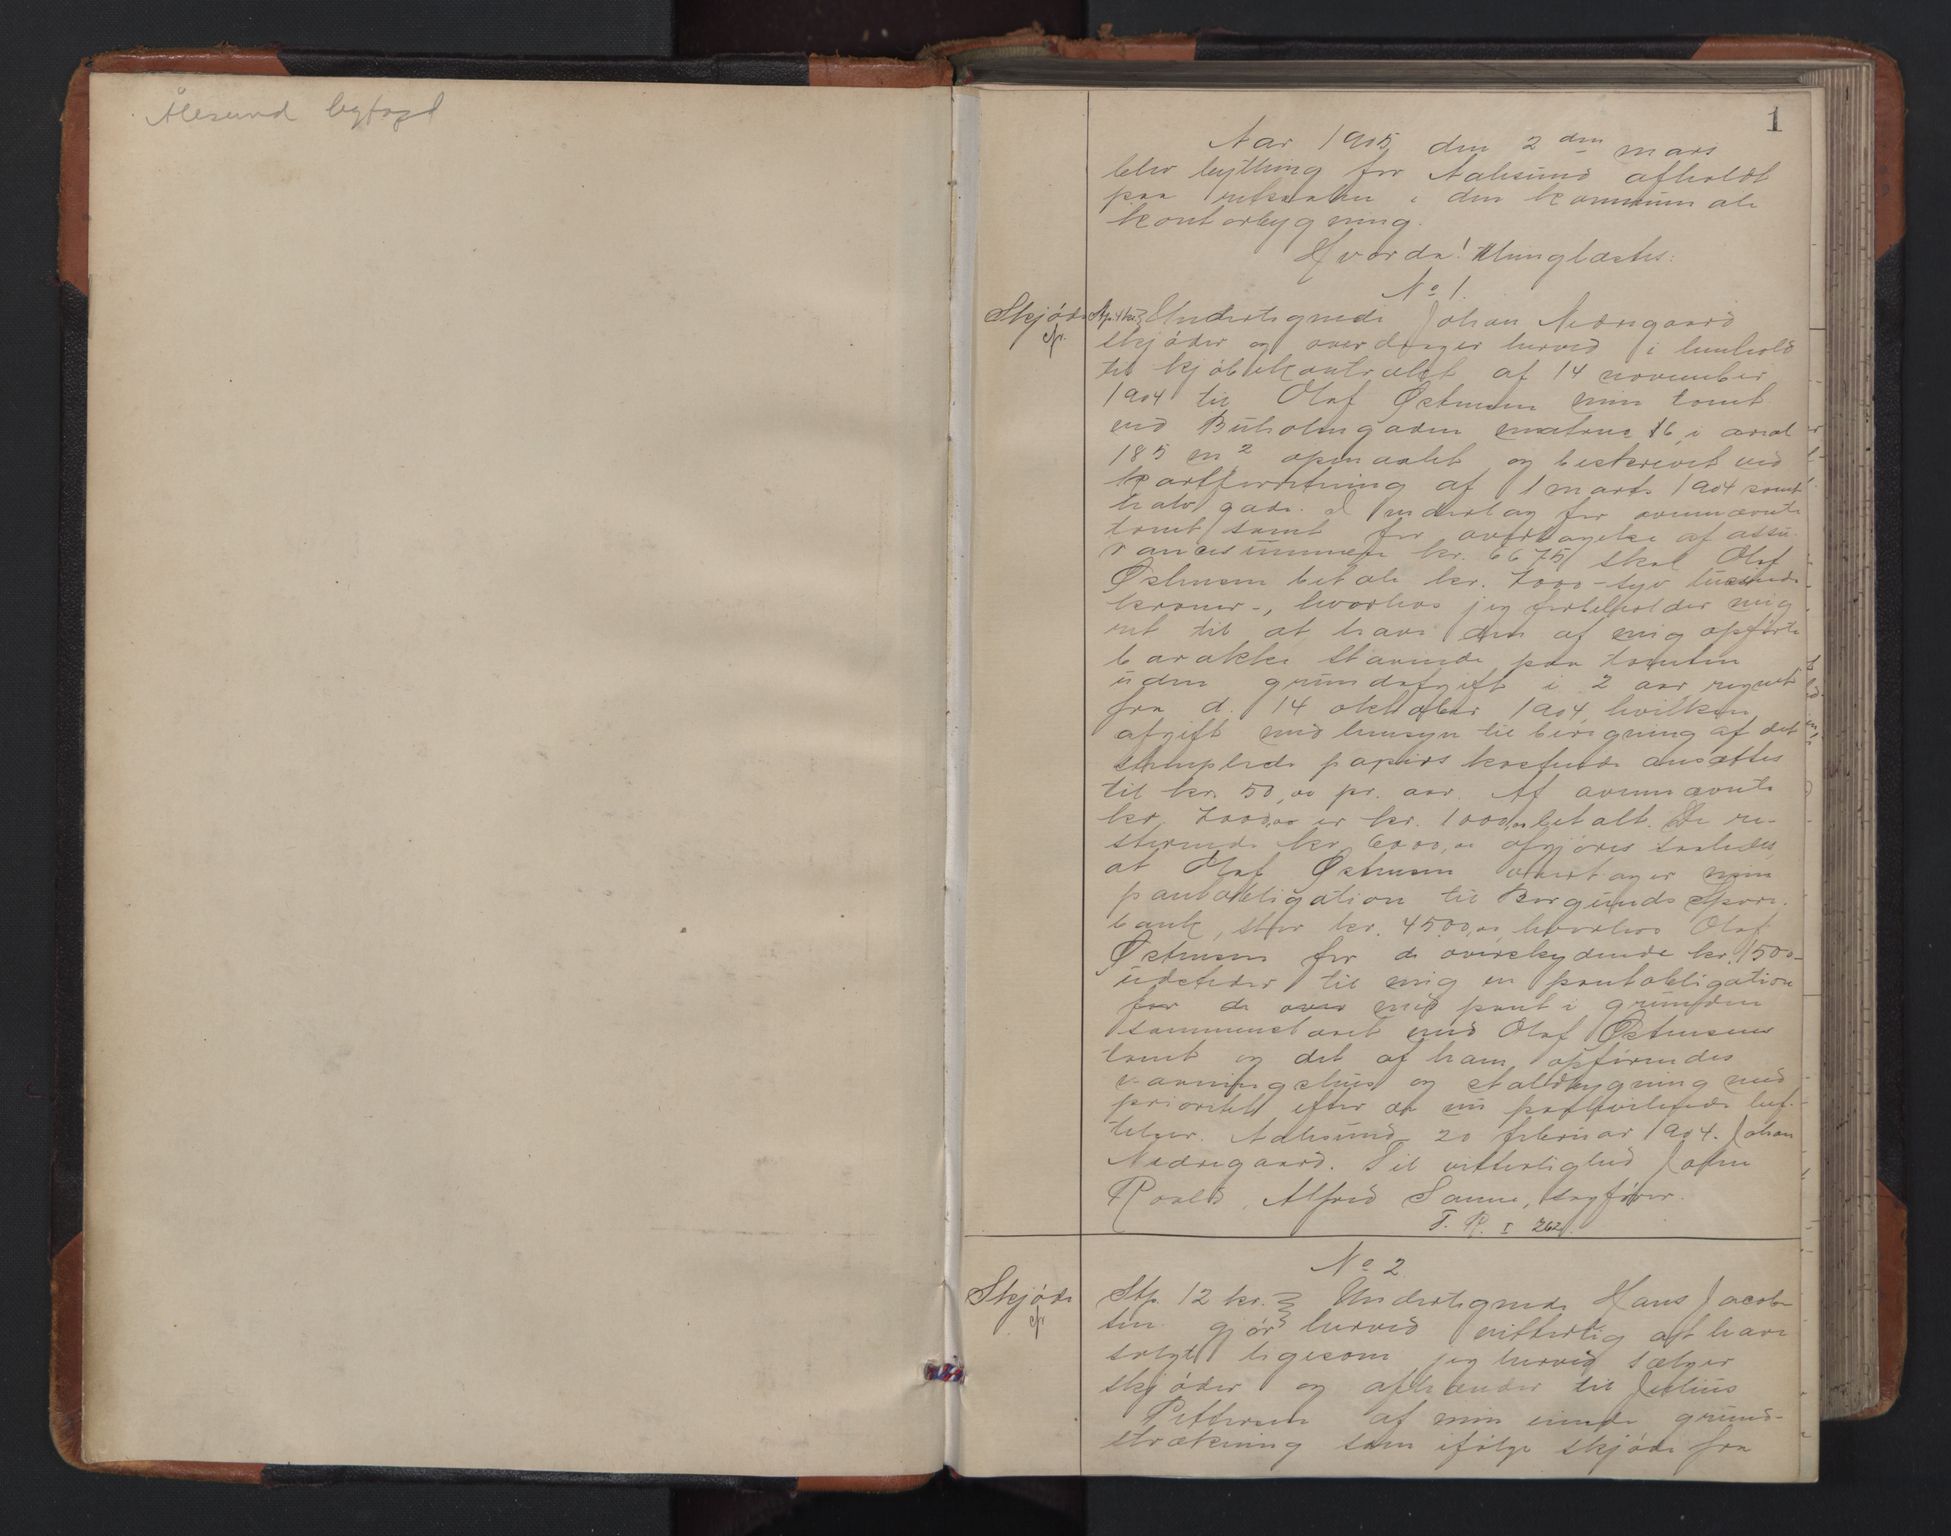 Ålesund byfogd
1
Aar 1905 den 2den mars
blev bything for Aalesund afholdt
paa retssalen i den kommunale
kontorbygning.
Hvorda! thinglæstes:
No 1.
Skjøde Undertegnede Johan Nedregaard
skjøder og overdrager herved i henhold
til kjøbekontrakt af 14 november
1904 til Olaf Østensen min tomt
ved Buholmgaden matrne 16, i areal
185 m2 opmaalet og beskrevet ved
kartforretning af 1 marts 1904 samt
halv gade. I vederlag for ovennævnte
tomt samt for overdragelse af assu-
rancesummen kr. 6675 skal Olaf
Østensen betale kr. 7000 - syv tusende
kroner -, hvorhos jeg forbeholder mig
ret til at have den af mig opførte
barakke staaende paa tomten
uden grundafgift i 2 aar regnet
fra d. 14 oktober 1904, hvilken
afgift med hensyn til beregning af det
stemplede papirs kostende ansættes
til kr. 50,00 pr. aar. Af ovennævnte
kr. 7000,00 er kr. 1000,00 betalt. De re-
sterende kr. 6000,00 afgjøres saaledes,
at Olaf Østensen overtager min
pantobligation til Borgunds Spare-
bank, stor kr. 4500,00, hvorhos Olaf
Østensen for de overskydende kr. 1500-
udsteder til mig en pantobligation
for de over med pant i grunden
sammenstaaet med Olaf Østensens
tomt og det af ham opførendes
vaaningshus og staldbygning med
prioritet efter de nu paahvilende hef-
telser. Aalesund 20 februar 1904. Johan
Nedregaard. Til vitterlighed John
Roald, Alfred Sanne, sagfører.
T. R. I 262.
No 2.
Skjøde Stp. 12 kr. Undertegnede Hans Jacob-
sen gjør herved vitterlig at have
solgt ligesom jeg herved sælger
skjøder og afhænder til Julius
Pettersen af min eiende grund-
strækning som ifølge skjøde fra